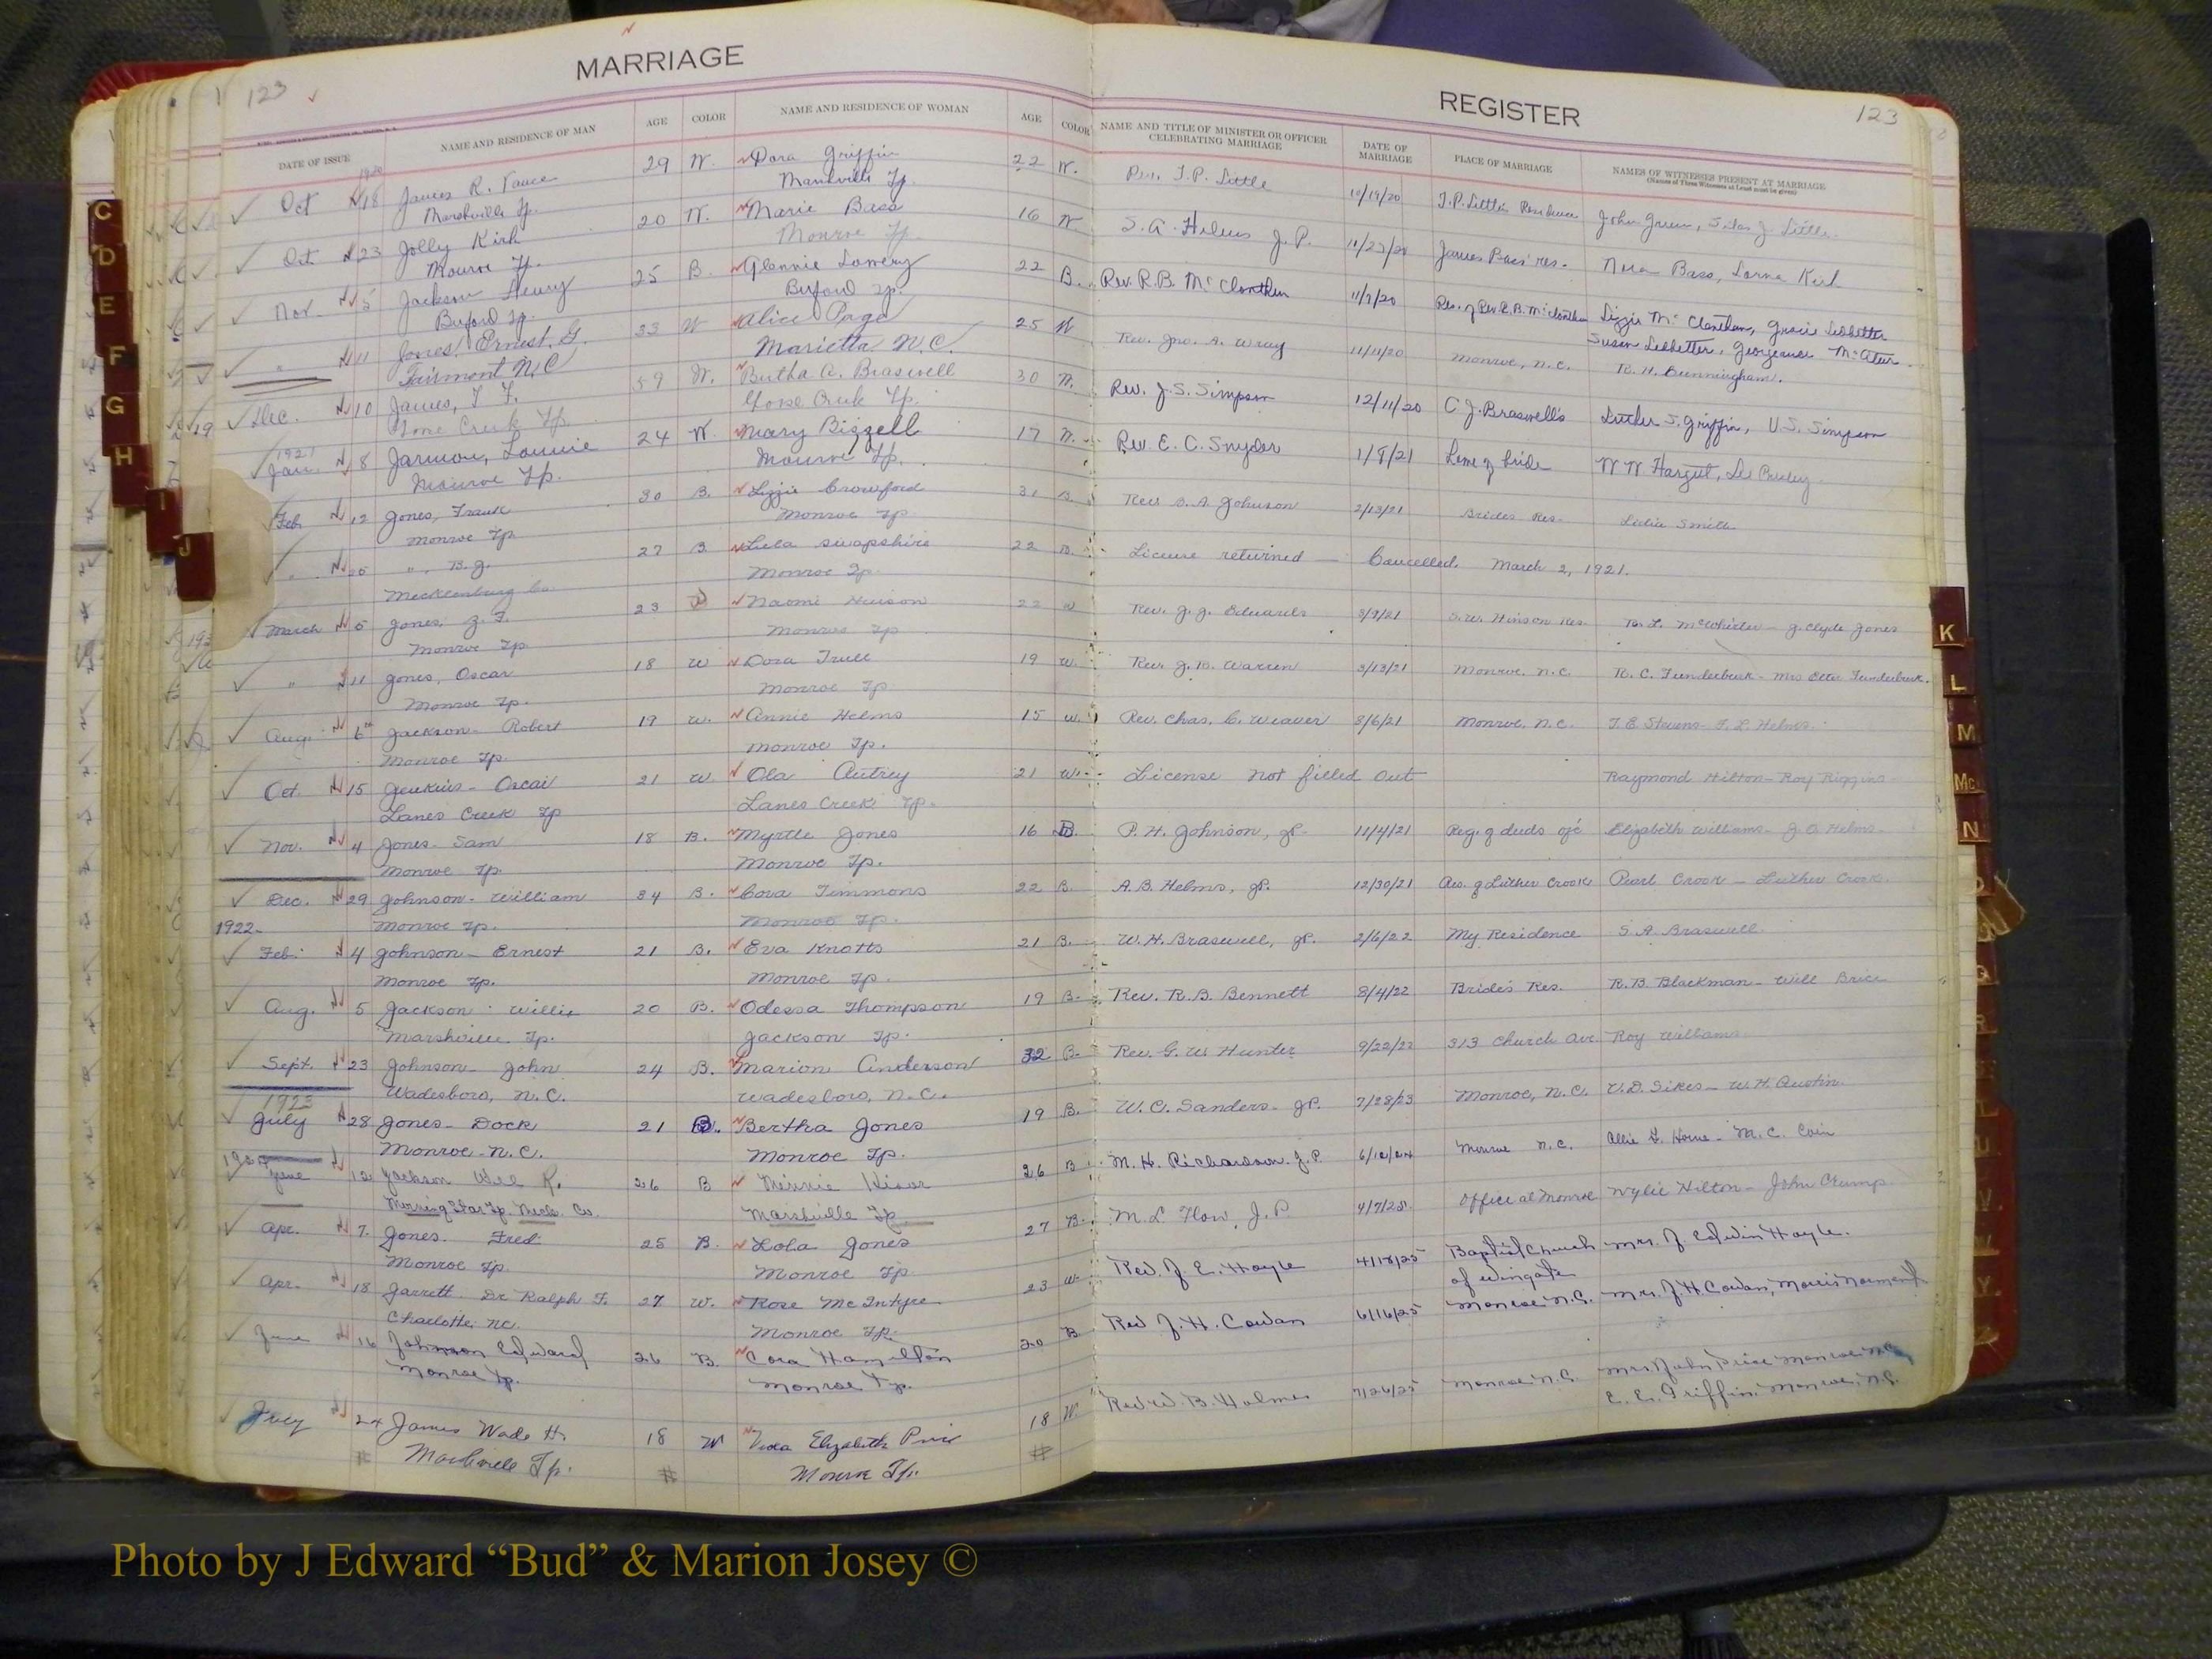 MARRIAGE
REGISTER
123
123
DATE OF ISSUE NAME AND RESIDENCE OF MAN AGE COLOR NAME AND RESIDENCE OF WOMAN AGE COLOR NAME AND TITLE OF MINISTER OR OFFICER CELEBRATING MARRIAGE DATE OF MARRIAGE PLACE OF MARRIAGE NAMES OF WITNESSES PRESENT AT MARRIAGE
(Names of Three Witnesses at Least must be given)
1920
Oct 18 James R. 29 W. Dora Griffin 22 W. Rev. J.P. Little 10/19/20 J.P. Little's Residence John Green, Silas J. Little
Marshville Tp. Marshville Tp.
Oct 23 Jolly Kirk 20 W. Marie Bass 16 W S. A. Helms J.P. James Bass' res.
Monroe Tp. Monroe Tp.
Nov. 5 Jackson Henry 25 B. Glennie Lowery 22 B. Rev. R.B. McClanthen 11/7/20 Res. of Rev. R.B. McClanthen Lizzie McClanthen, Gracie Ledbetter
Buford Tp. Buford Tp. Susan Ledbetter,
" 11 Jones, Ernest G. 33 W Alice Page 25 W Rev. Jno. A. Wray 11/11/20 Monroe, N.C.
Fairmont N.C. Marietta N.C.
Dec. 10 James, T. F. 59 W. Bertha A. Braswell 30 W. Rev. J.S. Simpson 12/11/20 C. J. Braswell's Luther S. Griffin, U.S. Simpson
Goose Creek Tp. Goose Creek Tp.
1921
Jan. 8 Jarmon, Lonnie 24 W. Mary Bizzell 17 W. Rev. E. C. Snyder 1/8/21 Home of bride
Monroe Tp. Monroe Tp.
Feb. 12 Jones, Frank 30 B. Lizzie Crowford 31 B. Rev. A. Johnson 2/13/21 Brides Res. Lidia Smith
Monroe Tp. Monroe Tp.
" " B. J. 27 B Lula 22 B. License returned — Cancelled. March 2, 1921.
Mecklenburg Co. Monroe Tp.
March 5 Jones, Z. F. 23 Naomi Hinson 22 W Rev. J. J. Edwards 3/9/21 S.W. Hinson Res. McWhirter - J. Clyde Jones
Monroe Tp. Monroe Tp
" 11 Jones, Oscar 18 W Dora Trull 19 W. Rev. J. B. Warren 3/13/21 Monroe. N.C. R. C. Funderburk - Mrs Funderburk.
Monroe Tp. Monroe Tp.
Aug. 6th Jackson - Robert 19 W. Annie Helms 15 W. Rev. Chas. C. Weaver 8/6/21 Monroe. N.C. T. E. Stevens - F. L. Helms.
Monroe Tp. Monroe Tp.
Oct. 15 Jenkins - Oscar 21 W. Ola Autrey 21 W. License not filled out Raymond Hilton - Roy Riggins
Lanes Creek Tp Lanes Creek Tp.
Nov. 4 Jones. Sam 18 B. Myrtle Jones 16 B. P. H. Johnson, JP. 11/4/21 Reg. of deeds Elizabeth Williams - J. O. Helms
Monroe Tp. Monroe Tp.
Dec. 29 Johnson - William 34 B. Cora Timmons 22 B. A. B. Helms, JP. 12/30/21 Res. of Luther Crook Pearl Crook - Luther Crook.
Monroe Tp. Monroe Tp.
1922
Feb. 4 Johnson - Ernest 21 B. Eva Knotts 21 B. W. H. Braswell, JP. 2/6/22 My Residence S. A. Braswell.
Monroe Tp. Monroe Tp.
Aug. 5 Jackson - Willie 20 B. Odessa Thompson 19 B. Rev. R. B. Bennett 8/4/22 Bride's Res. R. B. Blackman - Will Brice
Marshville Tp. Jackson Tp.
Sept. 23 Johnson - John 24 B. Marion Anderson 32 B. Rev. G. W. Hunter 9/22/22 313 Church Ave. Roy Williams
Wadesboro, N.C. Wadesboro, N.C.
1923
July 28 Jones - Dock 21 B. Bertha Jones 19 B. W. O. Sanders - JP. 7/28/23 Monroe, N.C. V. D. Sikes - W. H. Austin.
Monroe - N.C. Monroe Tp.
June 12 Jackson Will R. 26 B Minnie 26 B M. H. Richardson. J.P. 6/12/24 Monroe N.C. Allie G. Horne - M. C. Cain
Morning Star Tp. Meck. Co. Marshville Tp
Apr. 7. Jones. Fred 25 B. Lola Jones 27 B. M. L. Flow, J.P. 4/7/25 Office at Monroe Wylie Hilton - John Crump
Monroe Tp. Monroe Tp
Apr. 18 Jarrett. Dr Ralph F. 27 W. Rose McIntyre 23 W. Rev. J. E. Hoyle 4/18/25 Baptist Church of Wingate Mrs. J. Edwin Hoyle.
Charlotte, N.C. Monroe Tp.
June 16 Johnson Edward 26 B. Cora Hamilton 20 B. Rev J. H. Cowan 6/16/25 Monroe N.C. Mrs. J. H. Cowan, Morris Norment
Monroe Tp. Monroe Tp.
July 24 James Wade H. 18 W Elizabeth Price 18 W. Rev W. B. Holmes Monroe N.C. Mrs. John Price Monroe N.C.
Marshville Tp. Monroe Tp. E. E. Griffin, Monroe, N.C.
C
D
E
F
G
H
I
J
K
L
M
Mc
N
Photo by J Edward “Bud” & Marion Josey ©